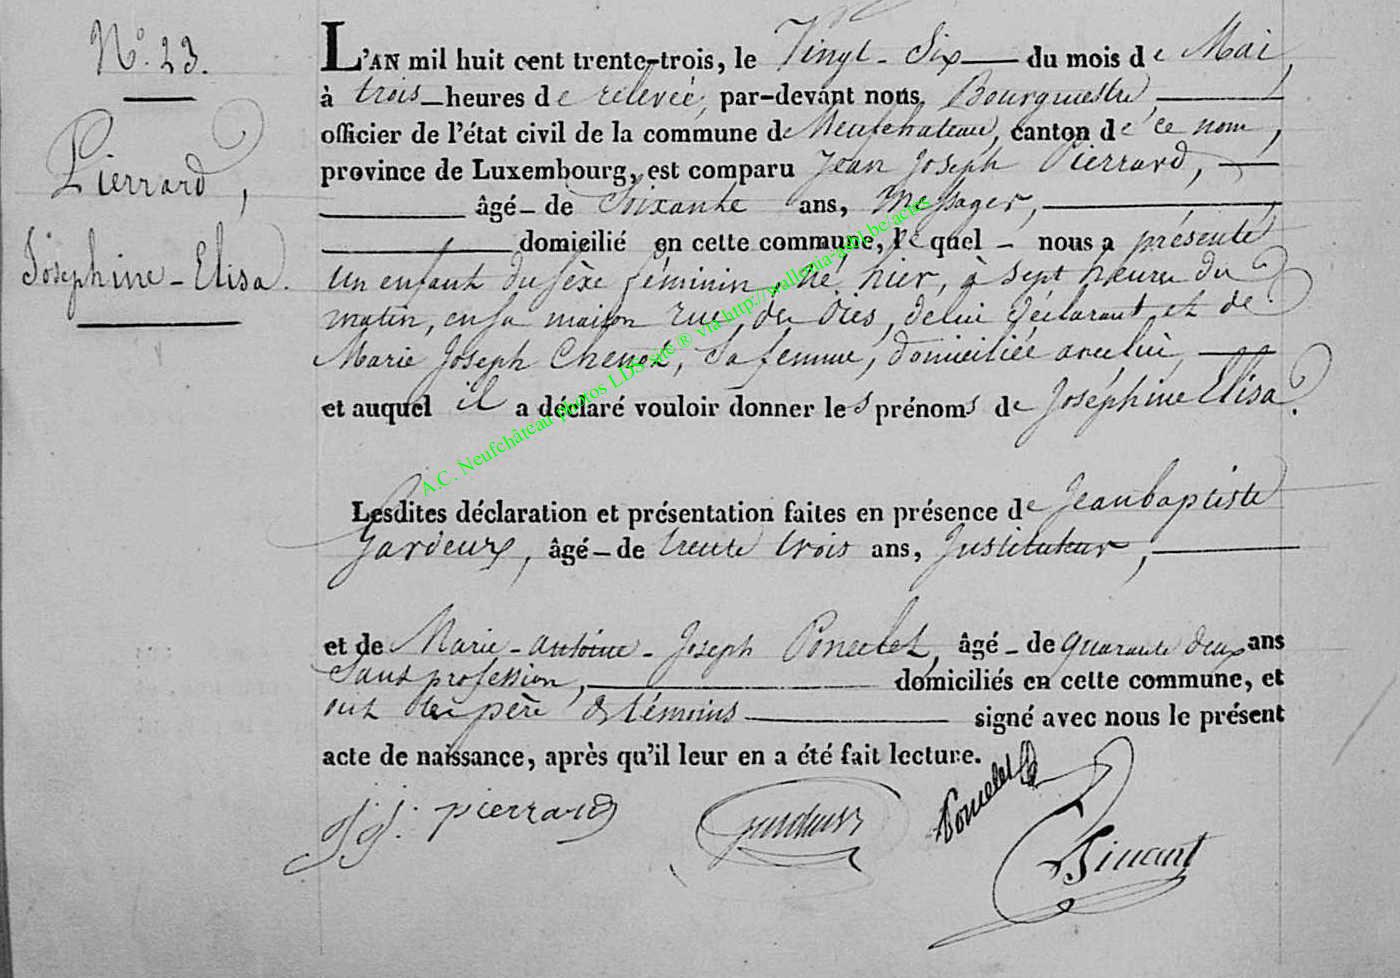 N° 23.
Pierrard,
Joséphine-Elisa.
L'AN mil huit cent trente-trois, le Vingt-Six du mois de Mai,
à trois heures de relevée, par-devant nous Bourgmestre,
officier de l'état civil de la commune de Neufchateau, canton de ce nom,
province de Luxembourg, est comparu Jean Joseph Pierrard,
âgé de Soixante ans, Messager,
domicilié en cette commune, lequel nous a présenté
un enfant du sèxe féminin, né hier, à sept heures du
matin, en sa maison rue des Oies, de lui déclarant et de
Marie Joseph Chenot, Sa femme, domiciliée avec lui,
et auquel il a déclaré vouloir donner les prénoms de Joséphine Elisa.
Lesdites déclaration et présentation faites en présence de Jean baptiste
Gardeux, âgé de trente trois ans, Instituteur,
et de Marie-antoine-Joseph Poncelet, âgé de quarante deux ans
Sans profession, domiciliés en cette commune, et
ont les père & témoins signé avec nous le présent
acte de naissance, après qu'il leur en a été fait lecture.
j. j. pierrard
gardeux
Poncelet
Dinant
A.C. Neufchâteau photos LDS site ® via http://wallonia-asbl.be/actes